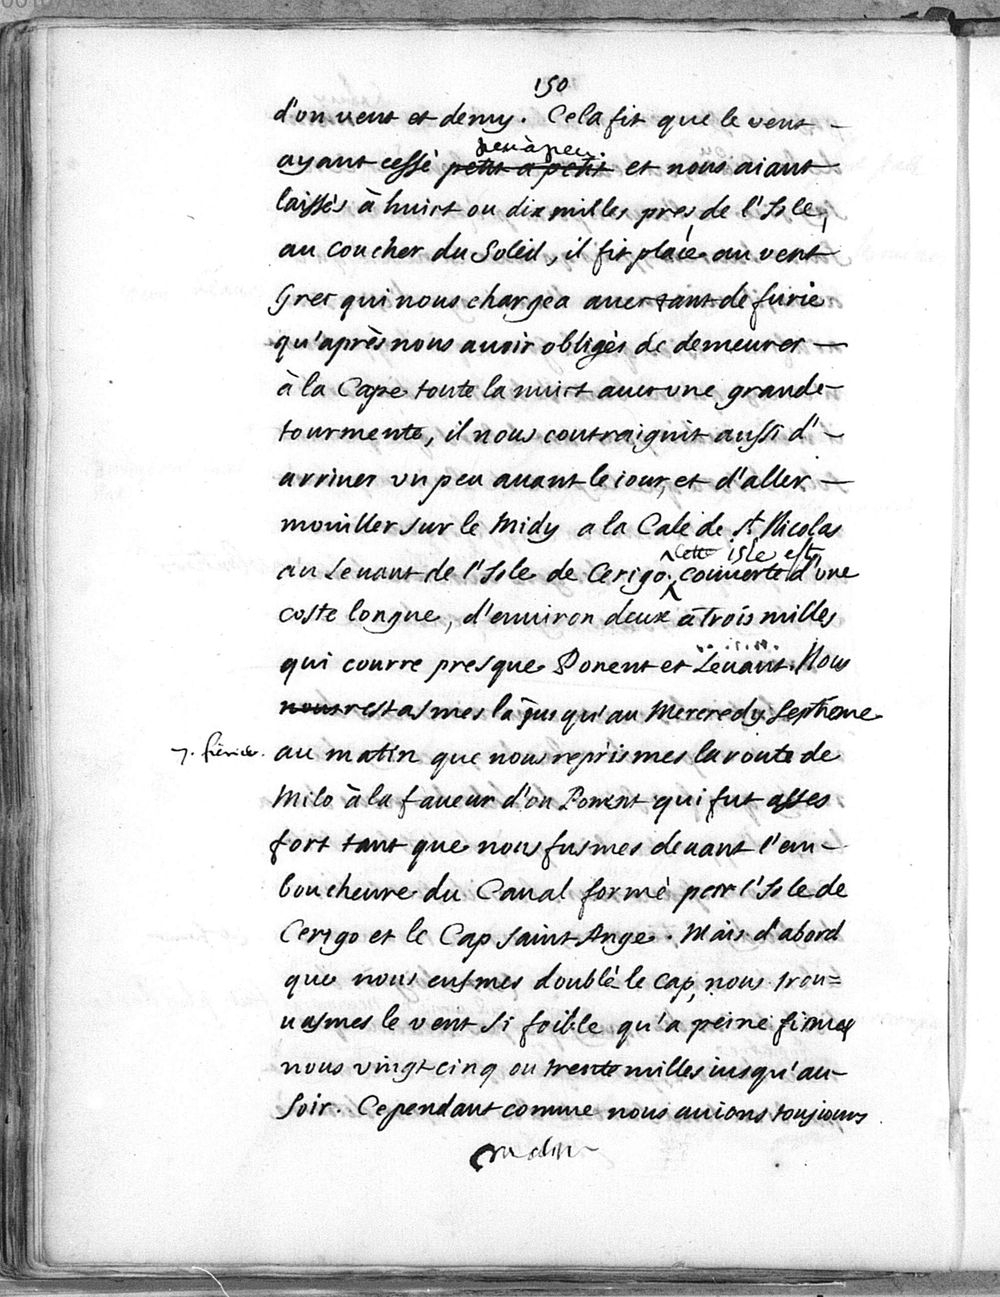 150
d'on vent et demy. Cela fit que le vent
peu à peu
ayant cessé petit a petit et nous aiant
laissés à huict ou dix milles pres de l'Isle,
au coucher du Soleil, il fit place au vent
Grec qui nous chargea avec tant de furie
qu'après nous avoir obligés de demeurer
à la Cape toute la nuict avec une grande
tourmente, il nous contraignit aussi d'
arriver un peu avant le iour, et d'aller
mouiller sur le Midy a la Cale de St Nicolas
Cette isle est
au Levant de l'Isle de Cerigo. couverte d'une
coste longue, d'environ deux à trois milles
qui courre presque Ponent et Levant. Nous
nous restasmes là jusqu'au Mercredy septiéme
7. février. au matin que nous reprismes la route de
Milo à la faveur d'un Ponent qui fut asses
fort tant que nous fusmes devant l'em-
boucheure du Canal formé par l'Isle de
Cerigo et le Cap saint Ange. Mais d'abord
que nous eusmes doublé le cap, nous trou=
vasmes le vent si foible qu'a peine fimes
nous vingt cinq ou trente milles iusqu'au
soir. Cependant comme nous avions tousiours